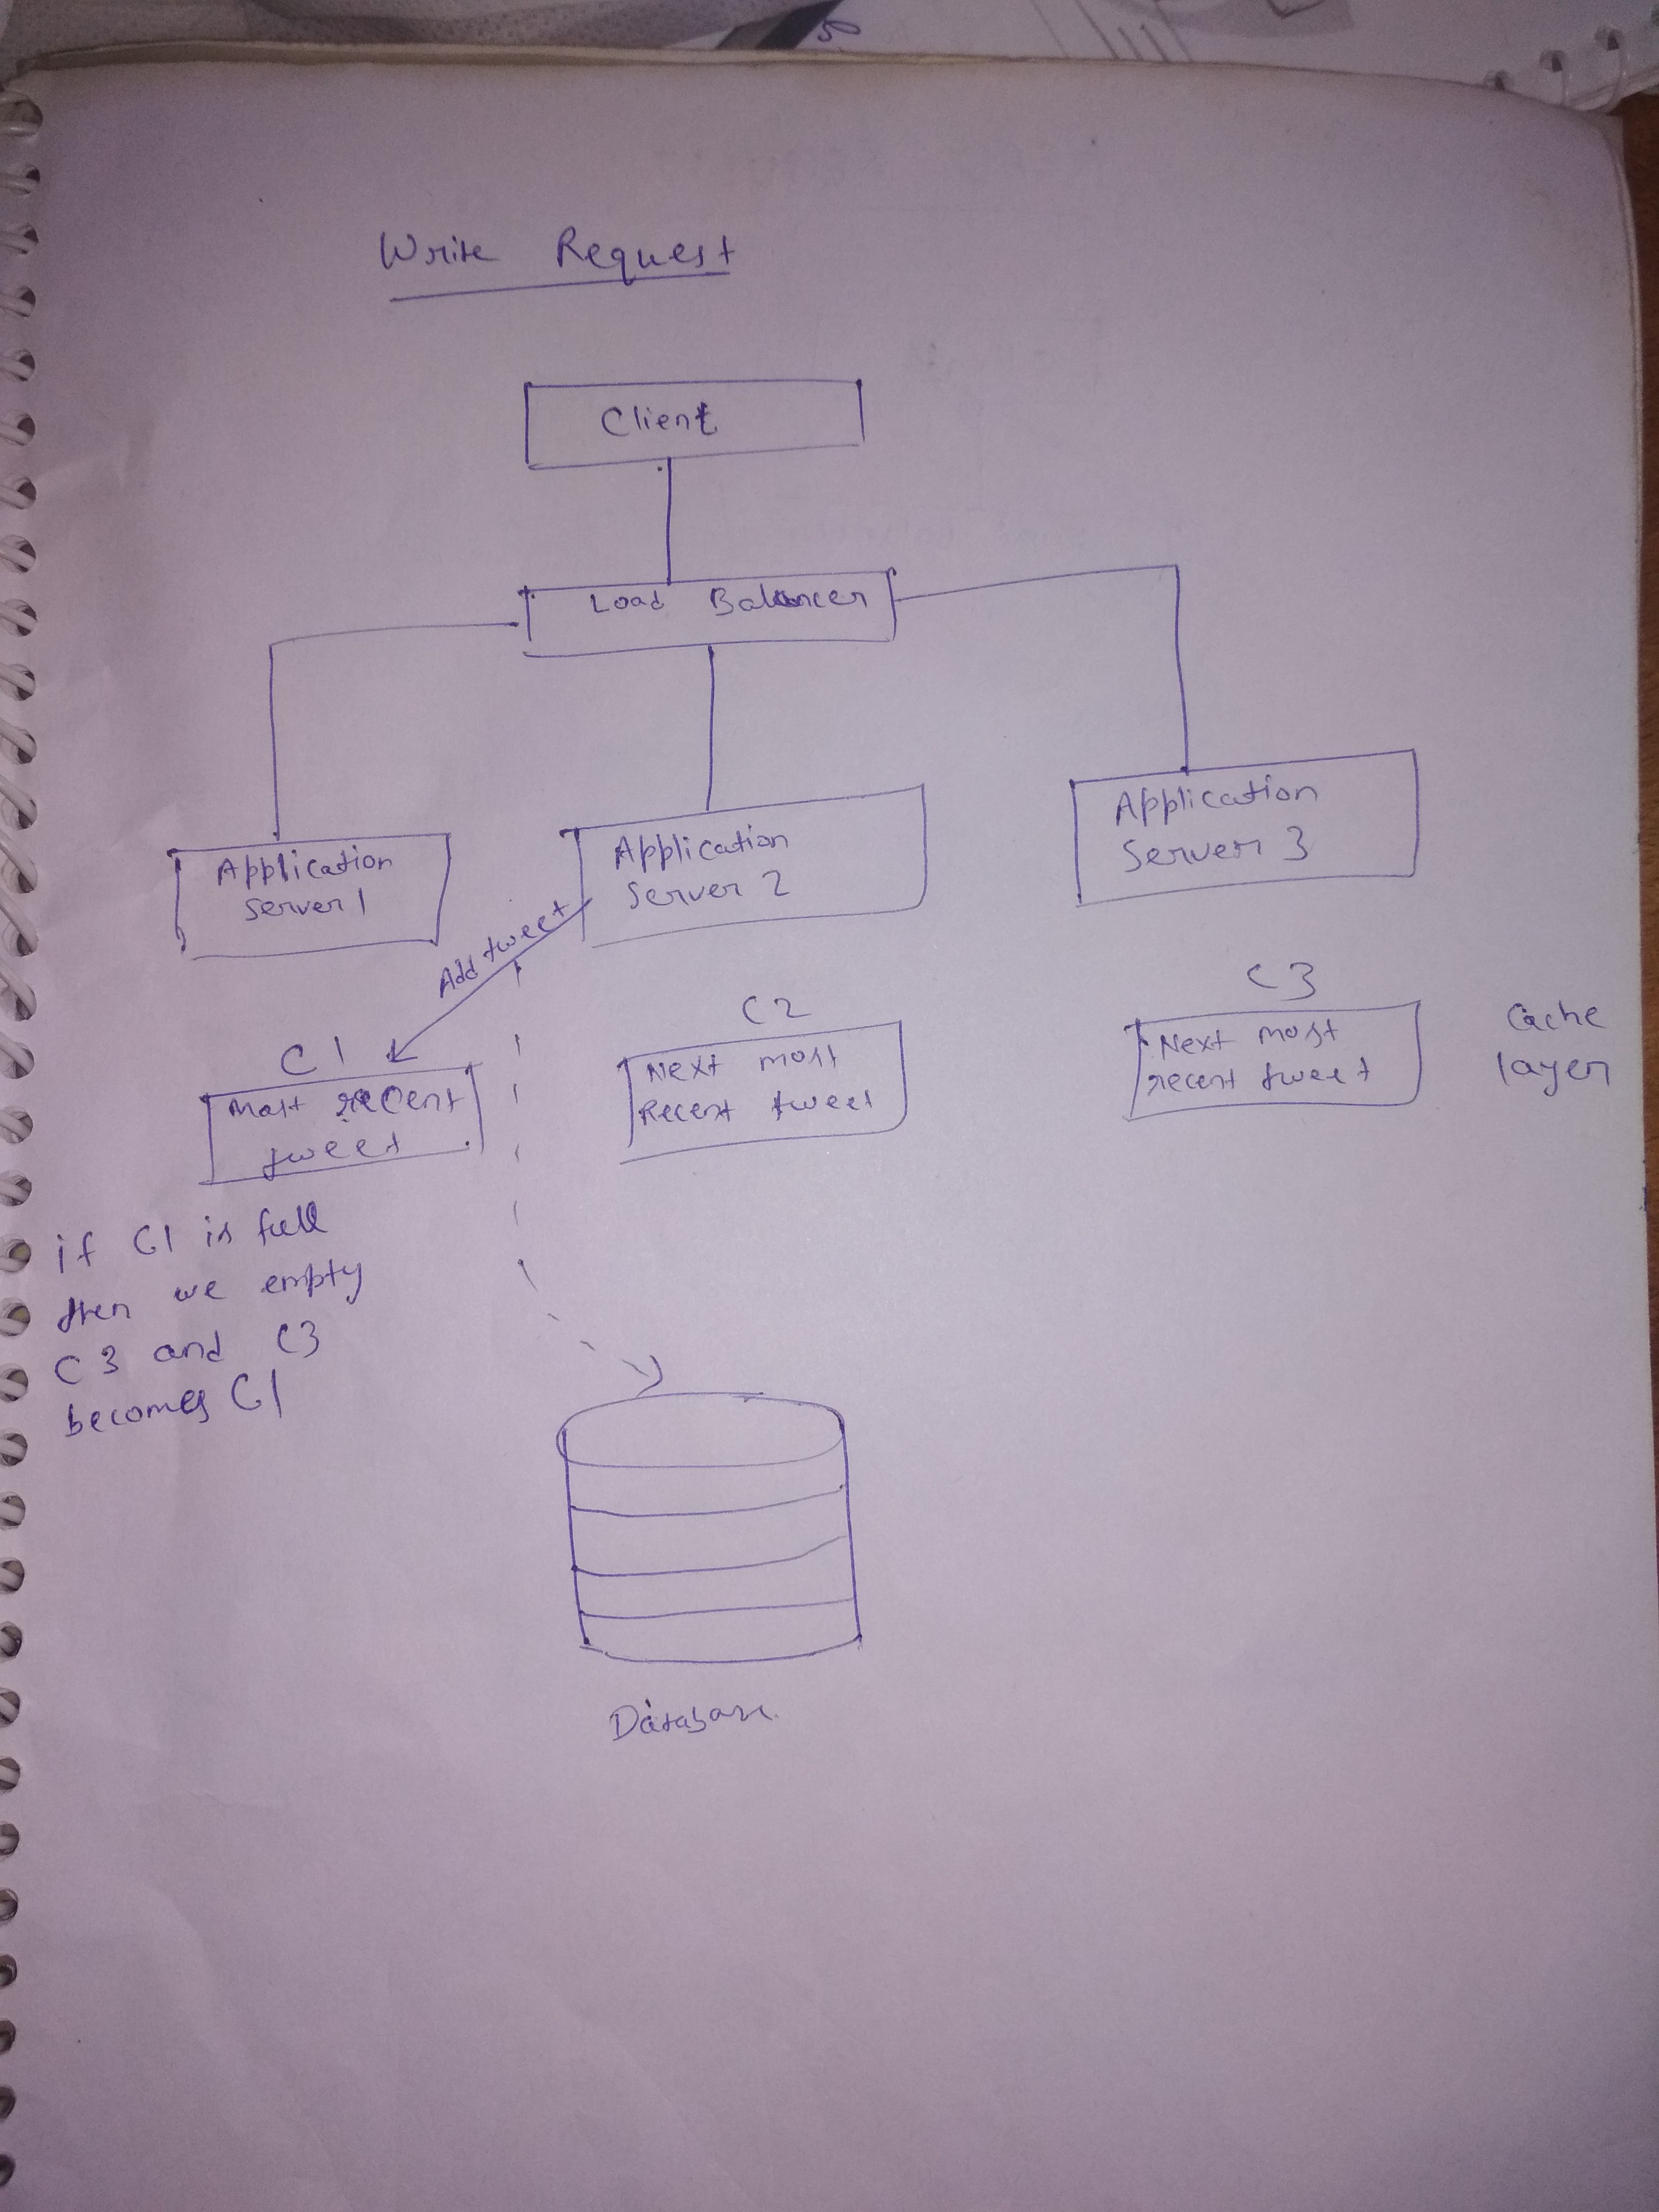 Write Request
Client
Load Balancer
Application
Server 1
Application
Server 2
Application
Server 3
Add tweet
C1
Most recent
tweet
C2
Next most
Recent tweet
C3
Next most
recent tweet
Cache
layer
if C1 is full
then we empty
C3 and C3
becomes C1
Database